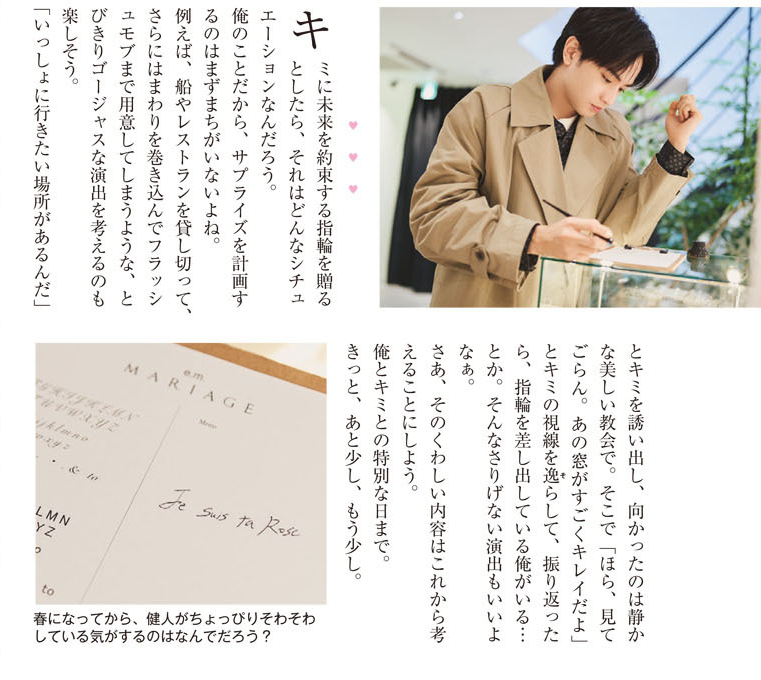 キミに未来を約束する指輪を贈る
としたら、それはどんなシチュ
エーションなんだろう。
俺のことだから、サプライズを計画す
るのはまずまちがいないよね。
例えば、船やレストランを貸し切って、
さらにはまわりを巻き込んでフラッシ
ュモブまで用意してしまうような、と
びきりゴージャスな演出を考えるのも
楽しそう。
「いっしょに行きたい場所があるんだ」
とキミを誘い出し、向かったのは静か
な美しい教会で。そこで「ほら、見て
ごらん。あの窓がすごくキレイだよ」
とキミの視線を逸らして、振り返った
ら、指輪を差し出している俺がいる…
とか。そんなさりげない演出もいいよ
なぁ。
さあ、そのくわしい内容はこれから考
えることにしよう。
俺とキミとの特別な日まで。
きっと、あと少し、もう少し。
em
MARIAGE
Memo
Je suis ta Rose
klmno
oxyz
& to
LMN
YZ
to
春になってから、健人がちょっぴりそわそわ
している気がするのはなんでだろう？